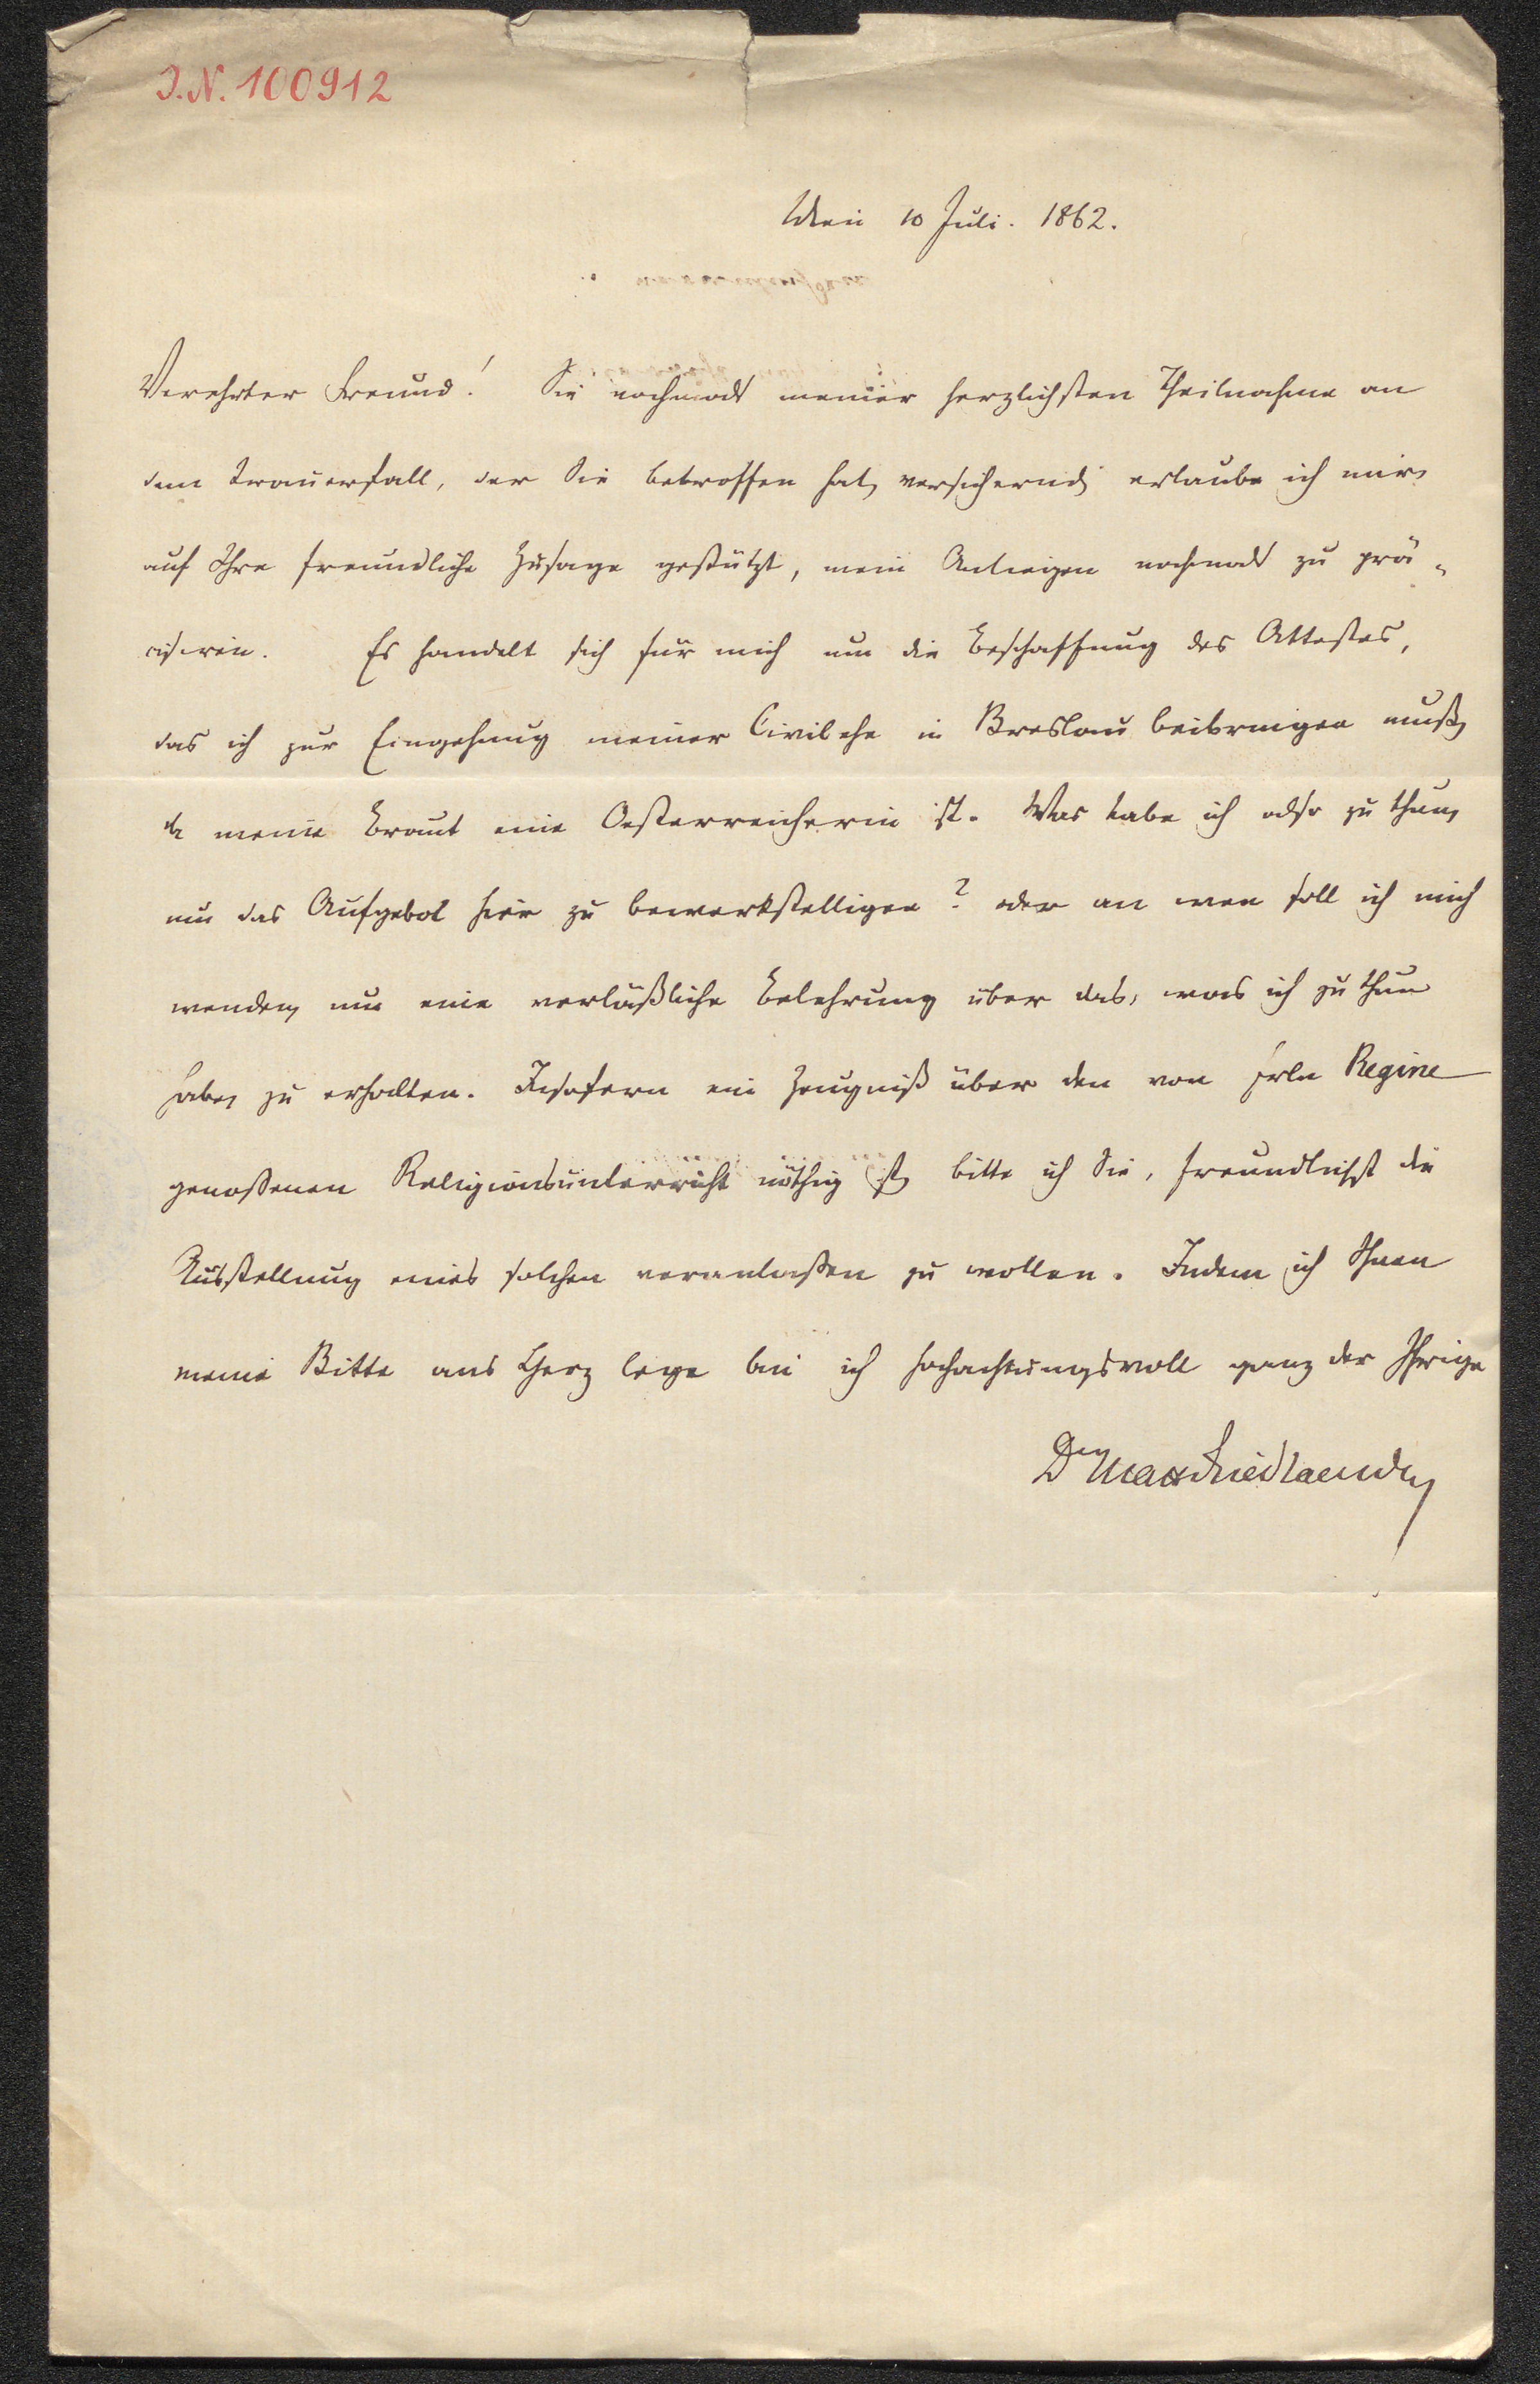 I.N. 100912
Wien 10 Juli. 1862.
Verehrter Freund! Sie nochmals meiner herzlichsten Theilnahme an
dem Trauerfall, der Sie betroffen hat, versichernd, erlaube ich mir,
auf Ihre freundliche Zusage gestützt, mein Anliegen nochmals zu prä-
cisiren. Es handelt sich für mich um die Beschaffung des Attestes,
das ich zur Eingehung meiner Civilehe in Breslau beibringen muß,
da meine Braut eine Oesterreicherin ist. Was habe ich also zu thun,
um das Aufgebot hier zu bewerkstelligen? oder an wen soll ich mich
wenden, um eine verläßliche Belehrung über das, was ich zu thun
habe, zu erhalten. Insofern ein Zeugniß über den von Frln Regine
genoßenen Religionsunterricht nöthig ist, bitte ich Sie, freundlichst die
Ausstellung eines solchen veranlaßen zu wollen. Indem ich Ihnen
meine Bitte ans Herz lege bin ich hochachtungsvoll ganz der Ihrige
Dr Max Friedlaender